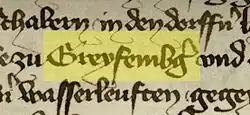 schabern in den dorffn
zu Greyfembg und
wasserleuften gege